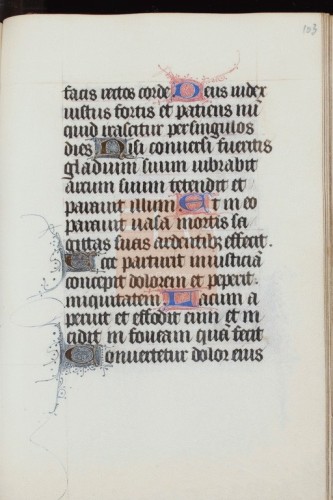 103
facis rectos corde Deus iudex
iustus fortis et paciens nu
quid irascitur per singulos
dies Nisi conversi fueritis
gladium suum vibrabit
arcum suum tetendit et
paravit illum Et in eo
paravit vasa mortis sa
gittas suas ardentibz effecit.
Ecce parturit iniusticiā
concepit dolorem et peperit.
iniquitatem Lacum a
peruit et effodit eum et in
cidit in foveam quā fecit
Convertetur dolor eius